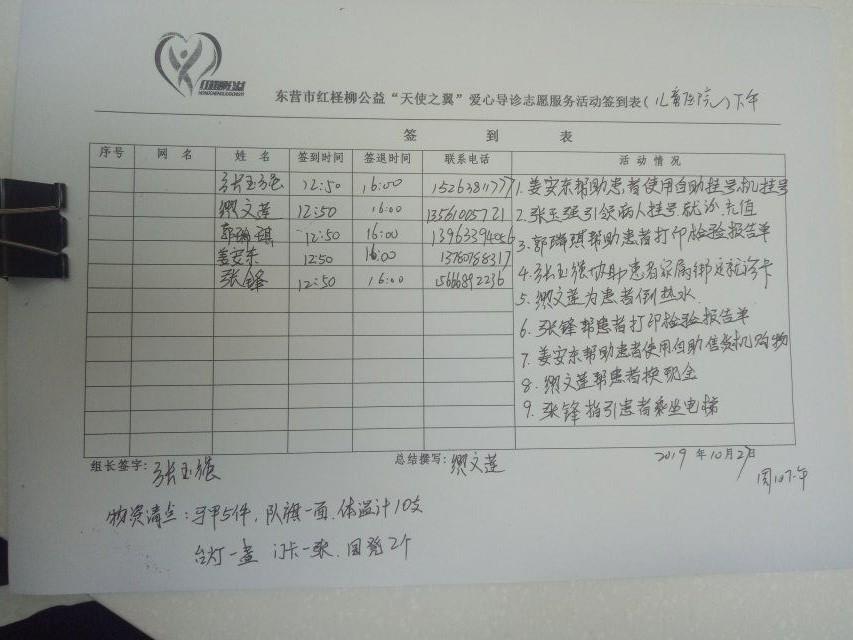 红柽柳公益
东营市红柽柳公益“天使之翼”爱心导诊志愿服务活动签到表(儿童医院)下午
签 到 表
序号 网 名 姓 名 签到时间 签退时间 联系电话 活 动 情 况
张玉强 12:50 16:00 15263811777 1.姜安东帮助患者使用自助挂号机挂号
缪文莲 12:50 16:00 13561005721 2.张玉强引领病人挂号就诊.充值
郭瑞琪 12:50 16:00 13963394056 3.郭瑞琪帮助患者打印检验报告单
姜安东 12:50 16:00 4.张玉强协助患者家属绑定就诊卡
张锋 12:50 16:00 15666892236 5.缪文莲为患者倒热水
6.张锋帮患者打印检验报告单
7.姜安东帮助患者使用自助售货机购物
8.缪文莲帮患者换现金
9.张锋指引患者乘坐电梯
组长签字:张玉强 总结撰写:缪文莲 2019年10月27日
周日下午
物资清点:马甲5件,队旗一面.体温计10支
台灯一盏 门卡一张.回凳2个